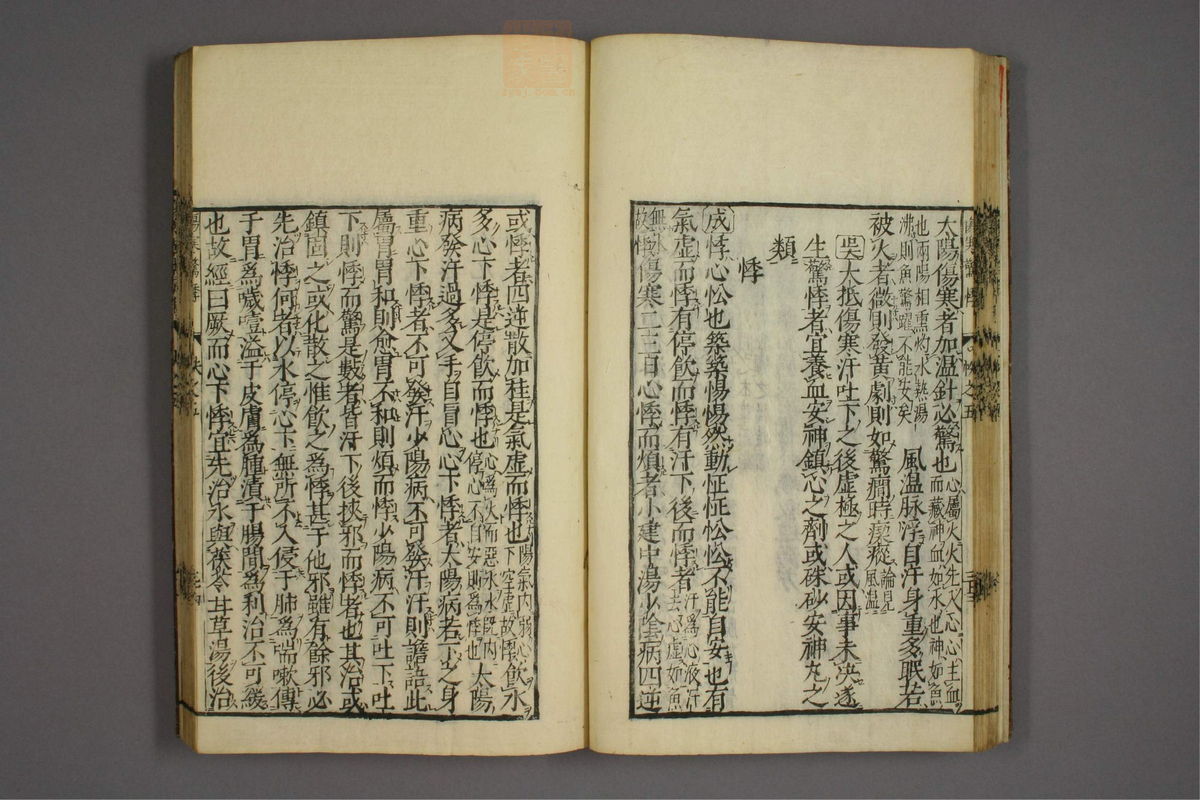 太陽傷寒者加温針必驚也心屬火火先入心心主血
而藏神血如水也神如魚
也兩陽相熏灼水熱湯
沸則魚驚躍不能安矣風温脉浮自汗身重多眠若
被火者微則發黄劇則如驚癎時瘈瘲論見
風温
吴大抵傷寒汗吐下之後虚極之人或因事未決遂
生驚悸者宜養血安神鎮心之劑或硃砂安神丸之
類
悸
成悸心忪也築築惕惕然動怔怔忪忪不能自安也有
氣虚而悸有停飲而悸有汗下後而悸者汗爲心液汗
去心虚如魚
無水
故悸傷寒二三日心悸而煩者小建中湯少陰病四逆
或悸者四逆散加桂是氣虚而悸也陽氣内弱心
下空虚故悸飲水
多心下悸是停飲而悸也心爲火而惡水水既内
停心不自安則爲悸也太陽
病發汗過多叉手自冒心心下悸者太陽病若下之身
重心下悸者不可發汗少陽病不可發汗汗則譫語此
屬胃胃和則愈胃不和則煩而悸少陽病不可吐下吐
下則悸而驚是數者皆汗下後挾邪而悸者也其治或
鎮固之或化散之惟飲之爲悸甚于他邪雖有餘邪必
先治悸何者以水停心下無所不入侵于肺爲喘嗽傳
于胃爲噦噎溢于皮膚爲腫漬于腸間爲利治不可緩
也故經曰厥而心下悸宜先治水與茯苓甘草湯後治